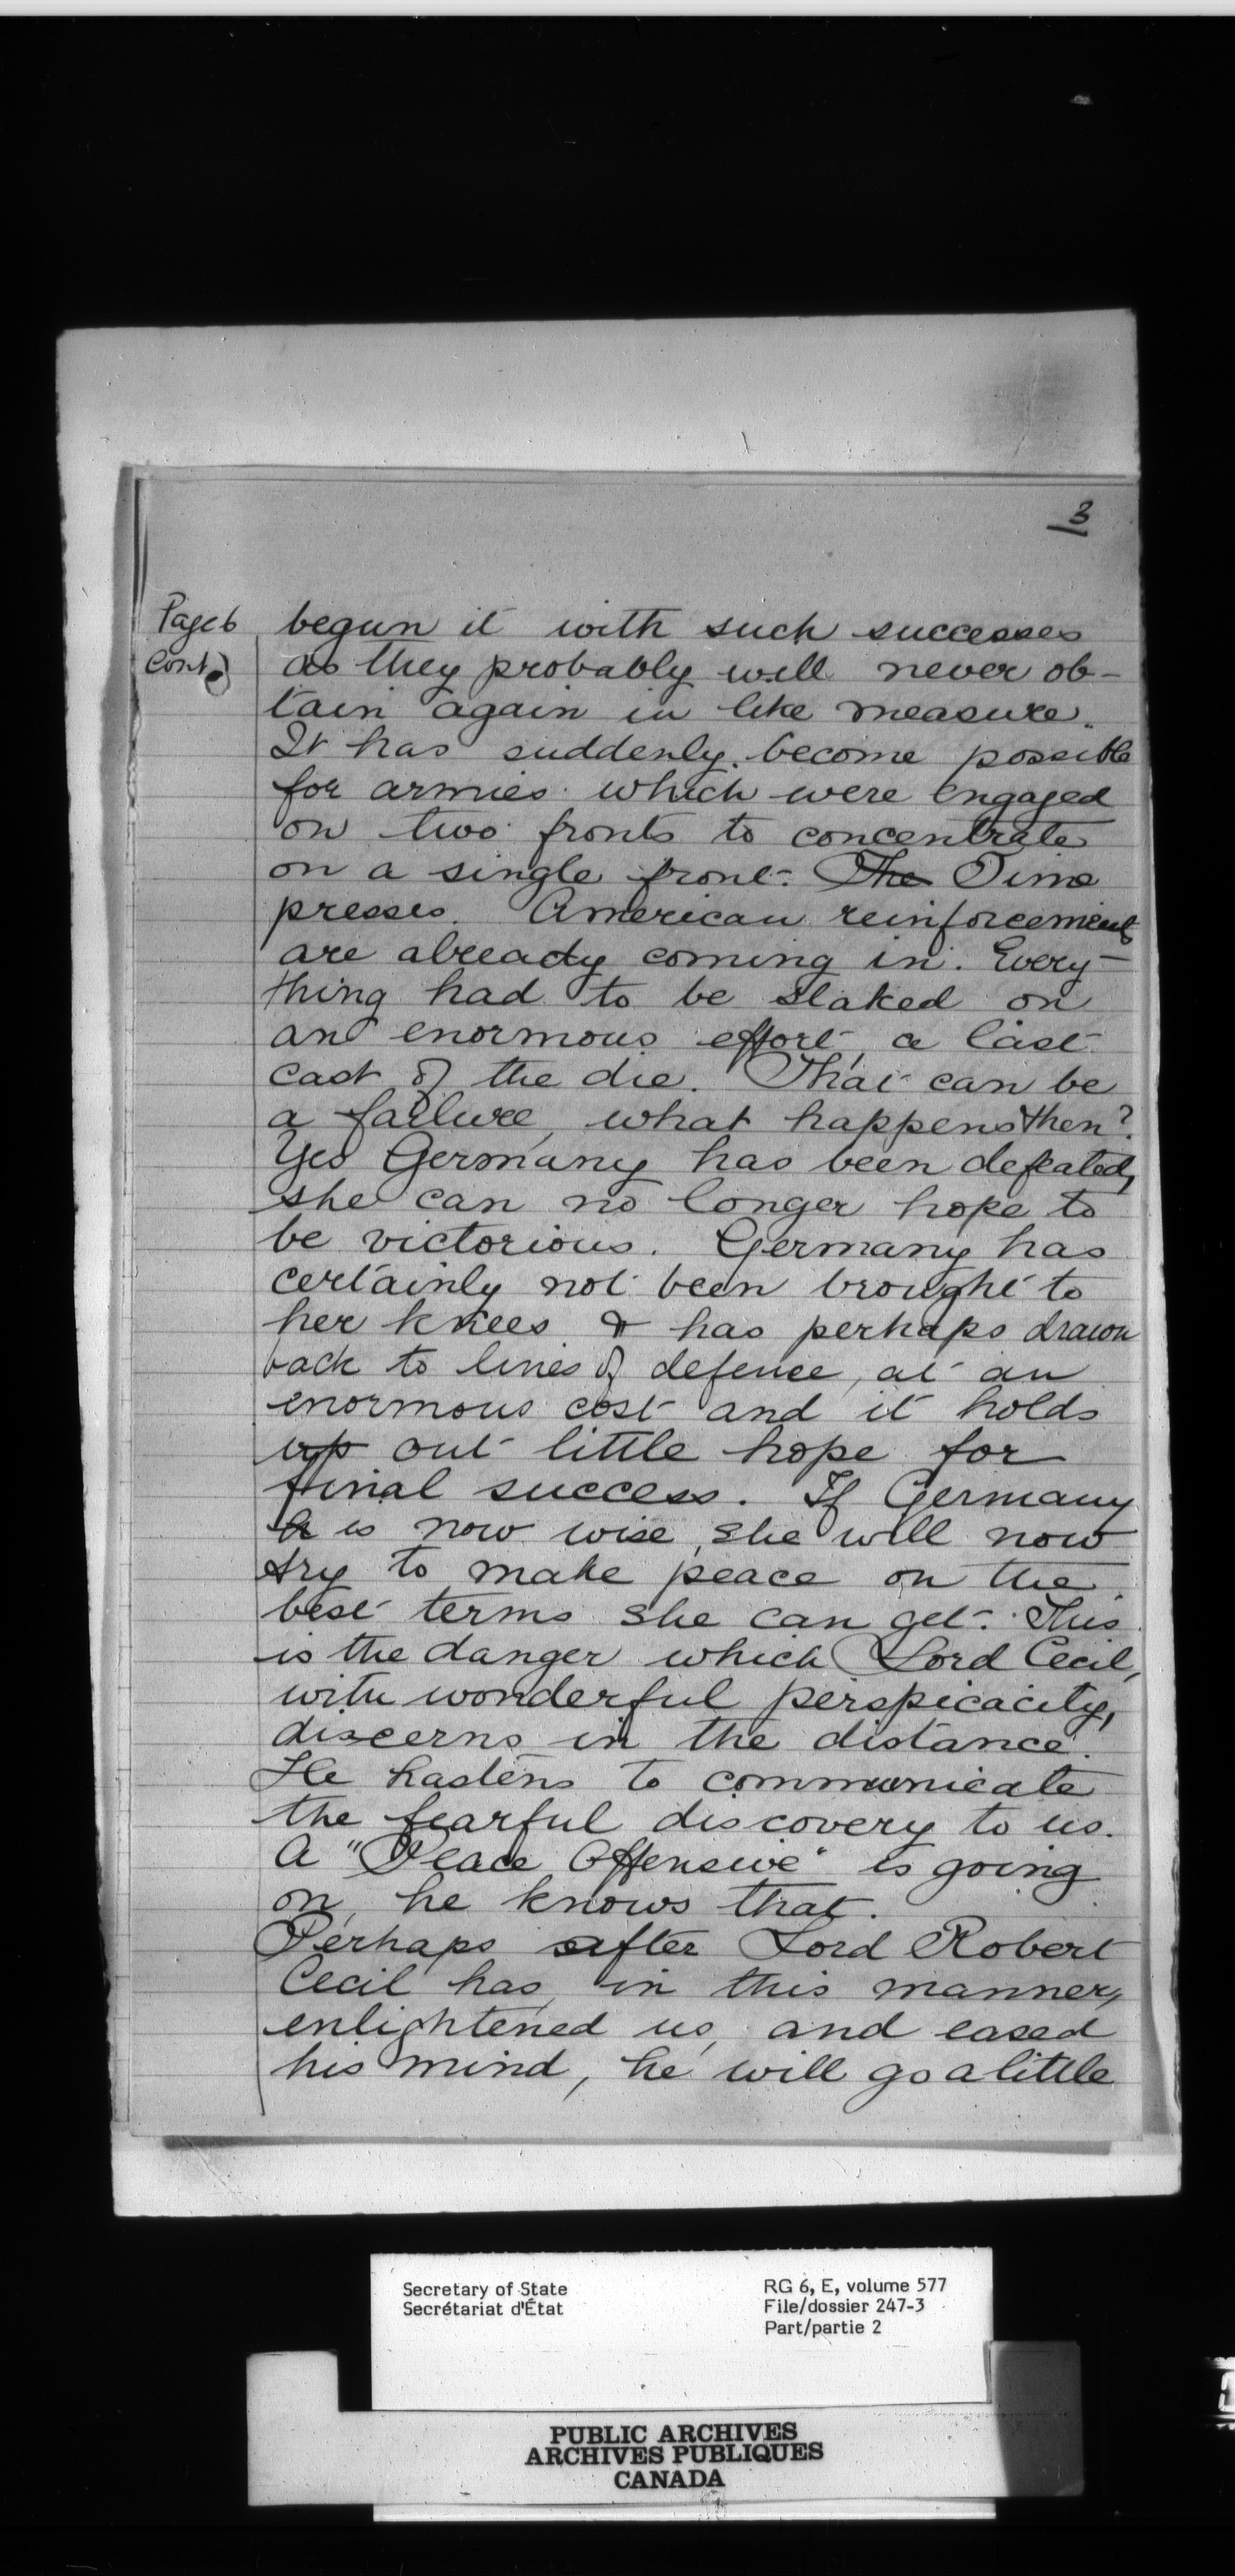 3
Page 6
Cont)
begun it with such successes
as they probably will never ob-
tain again in like measure.
It has suddenly become possible
for armies which were engaged
on two fronts to concentrate
on a single front. The Time
presses. American reinforcements
are already coming in. Every-
thing had to be staked on
an enormous effort, a last
cast of the die. That can be
a failure, what happens then?
Yes Germany has been defeated,
she can no longer hope to
be victorious. Germany has
certainly not been brought to
her knees & has perhaps drawn
back to lines of defence, at an
enormous cost and it holds
up out little hope for
final success. If Germany
h is now wise, she will now
try to make peace on the
best terms she can get. This
is the danger which Lord Cecil,
with wonderful perspicacity,
discerns in the distance.
He hastens to communicate
the fearful discovery to us.
A "Peace Offensive" is going
on, he knows that.
Perhaps after Lord Robert
Cecil has, in this manner,
enlightened us, and eased
his mind, he will go a little
Secretary of State
Secrétariat d'État
RG 6, E, volume 577
File/dossier 247-3
Part/partie 2
PUBLIC ARCHIVES
ARCHIVES PUBLIQUES
CANADA